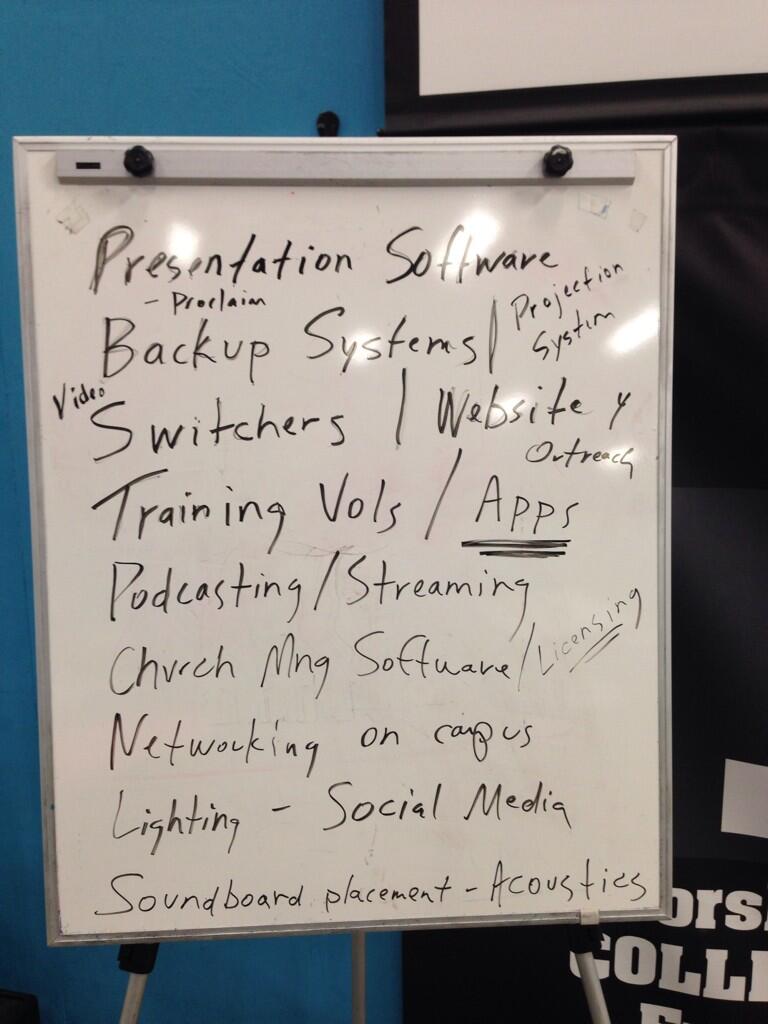 Presentation Software
- Proclaim
Backup Systems / Projection System
Video Switchers / Website &
Outreach
Training Vols / Apps
Podcasting/Streaming
Church Mng Software/Licensing
Networking on campus
Lighting - Social Media
Soundboard placement - Acoustics
COLL